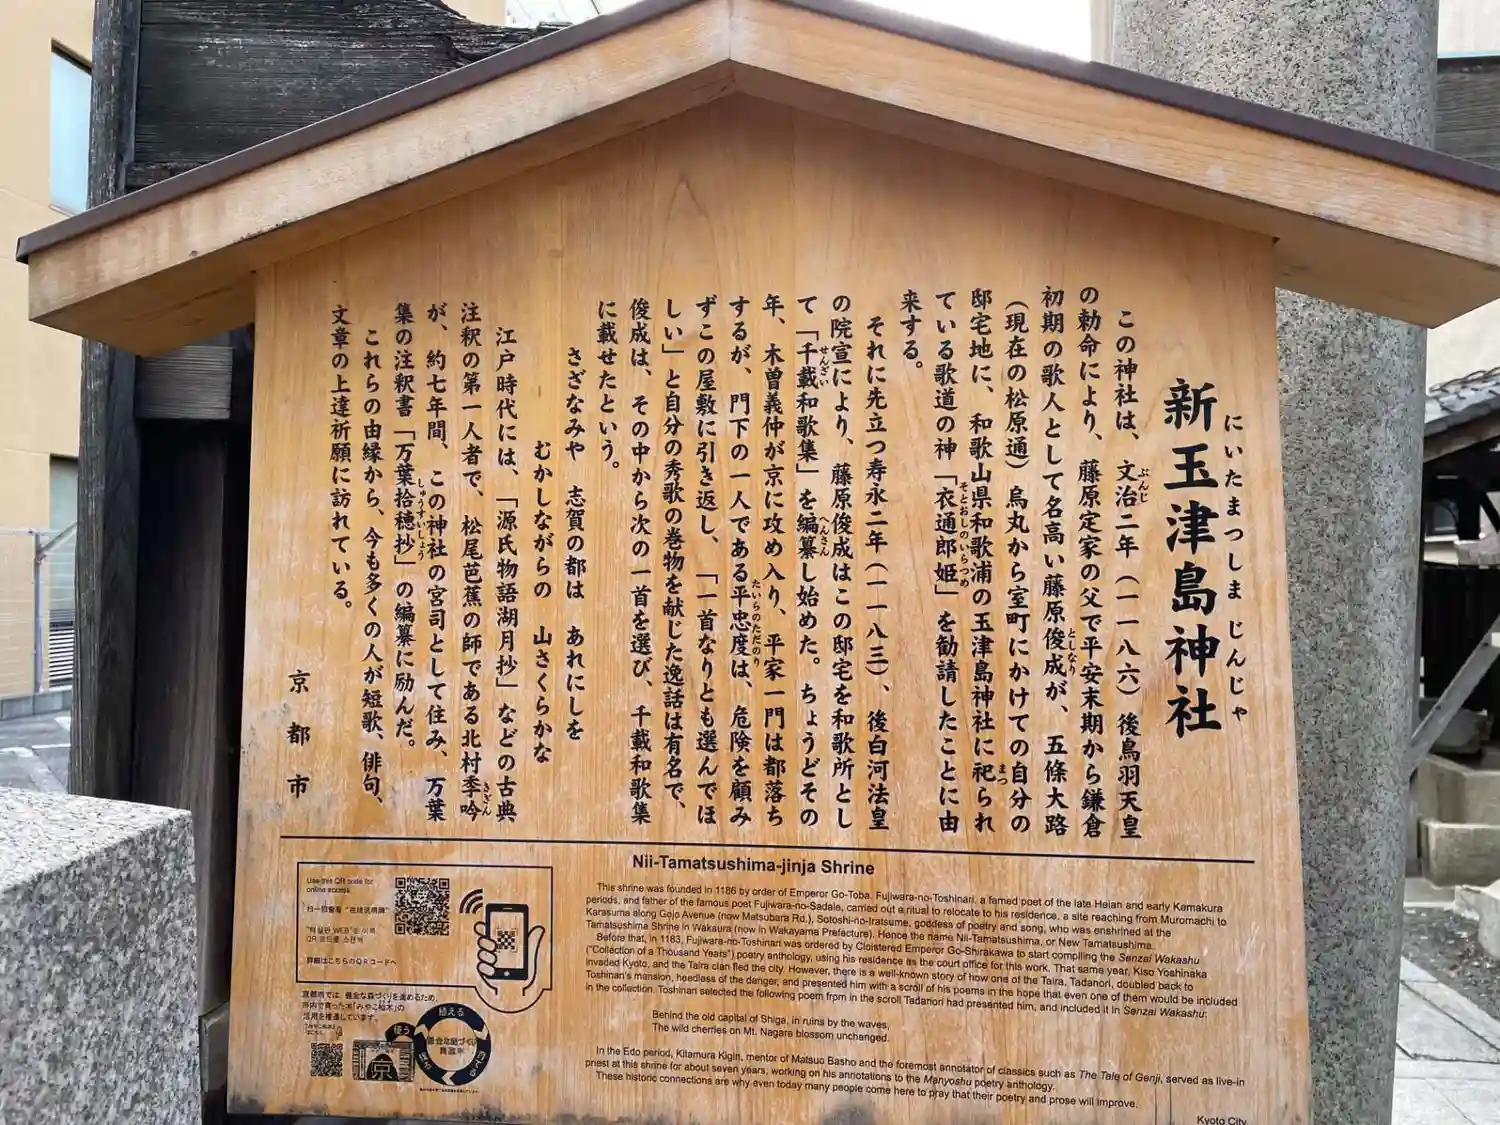 新玉津島神社
にいたまつしま じんじゃ
この神社は、文治二年(一一八六)後鳥羽天皇
の勅命により、藤原定家の父で平安末期から鎌倉
初期の歌人として名高い藤原俊成が、五條大路
(現在の松原通)烏丸から室町にかけての自分の
邸宅地に、和歌山県和歌浦の玉津島神社に祀られ
ている歌道の神「衣通郎姫」を勧請したことに由
来する。
それに先立つ寿永二年(一一八三)、後白河法皇
の院宣により、藤原俊成はこの邸宅を和歌所とし
て「千載和歌集」を編纂し始めた。ちょうどその
年、木曽義仲が京に攻め入り、平家一門は都落ち
するが、門下の一人である平忠度は、危険を顧み
ずこの屋敷に引き返し、「一首なりとも選んでほ
しい」と自分の秀歌の巻物を献じた逸話は有名で、
俊成は、その中から次の一首を選び、千載和歌集
に載せたという。
さざなみや 志賀の都は あれにしを
むかしながらの 山さくらかな
江戸時代には、「源氏物語湖月抄」などの古典
注釈の第一人者で、松尾芭蕉の師である北村季吟
が、約七年間、この神社の宮司として住み、万葉
集の注釈書「万葉拾穂抄」の編纂に励んだ。
これらの由縁から、今も多くの人が短歌、俳句、
文章の上達祈願に訪れている。
京都市
ぶんじ
としなり
まつ
そとおしのいらつめ
せんざい
へんさん
たいらのただのり
きぎん
しゅうすいしょう
Nii-Tamatsushima-jinja Shrine
This shrine was founded in 1186 by order of Emperor Go-Toba. Fujiwara-no-Toshinari, a famed poet of the late Heian and early Kamakura
periods, and father of the famous poet Fujiwara-no-Sadaie, carried out a ritual to relocate to his residence, a site reaching from Muromachi to
Karasuma along Gojo Avenue (now Matsubara Rd.), Sotoshi-no-Iratsume, goddess of poetry and song, who was enshrined at the
Tamatsushima Shrine in Wakaura (now in Wakayama Prefecture). Hence the name Nii-Tamatsushima, or New Tamatsushima.
Before that, in 1183, Fujiwara-no-Toshinari was ordered by Cloistered Emperor Go-Shirakawa to start compiling the Senzai Wakashu
("Collection of a Thousand Years") poetry anthology, using his residence as the court office for this work. That same year, Kiso Yoshinaka
invaded Kyoto, and the Taira clan fled the city. However, there is a well-known story of how one of the Taira, Tadanori, doubled back to
Toshinari's mansion, heedless of the danger, and presented him with a scroll of his poems in the hope that even one of them would be included
in the collection. Toshinari selected the following poem from in the scroll Tadanori had presented him, and included it in Senzai Wakashu:
Behind the old capital of Shiga, in ruins by the waves,
The wild cherries on Mt. Nagara blossom unchanged.
In the Edo period, Kitamura Kigin, mentor of Matsuo Basho and the foremost annotator of classics such as The Tale of Genji, served as live-in
priest at this shrine for about seven years, working on his annotations to the Manyoshu poetry anthology.
These historic connections are why even today many people come here to pray that their poetry and prose will improve.
Kyoto City
Use this QR code for
online access
扫一扫查看“在线说明牌”
QR 코드를 스캔해
詳細はこちらのQRコードへ
京都市では、健全な森づくりを進めるため、
市内で育った木「みやこ杣木」の
活用を推進しています。
使う
植える
京